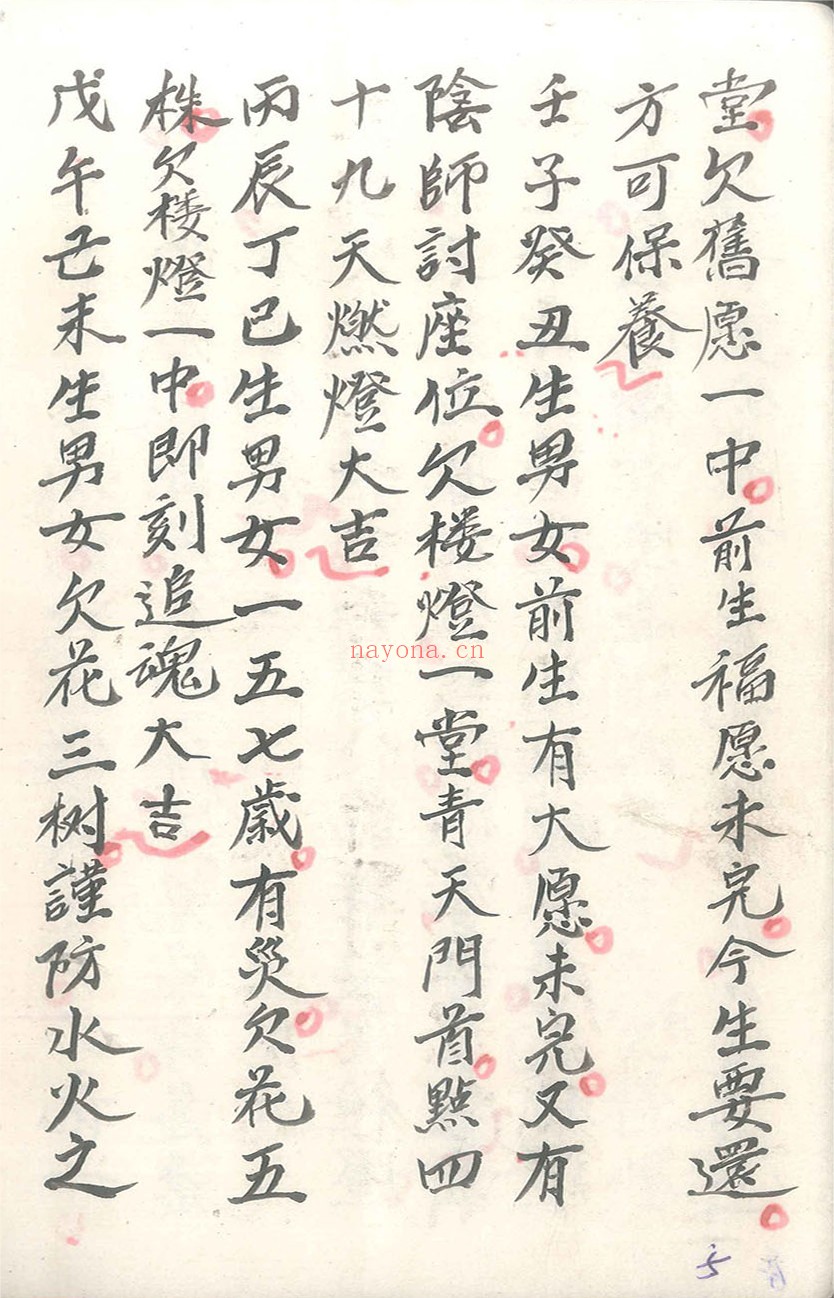 堂欠舊愿一中前生福愿未完今生要還
方可保養
壬子癸丑生男女前生有大愿未完又有
陰師討座位欠楼燈一堂青天門首點四
十九天燃燈大吉
丙辰丁巳生男女一五七歲有災欠花五
株欠楼燈一中即刻追魂大吉
戊午己未生男女欠花三树謹防水火之
nayona.cn